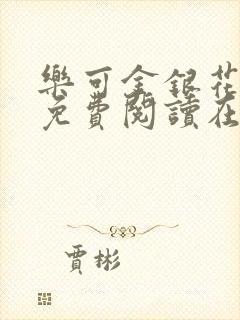 樂可金銀花
免費閱讀在
賈彬